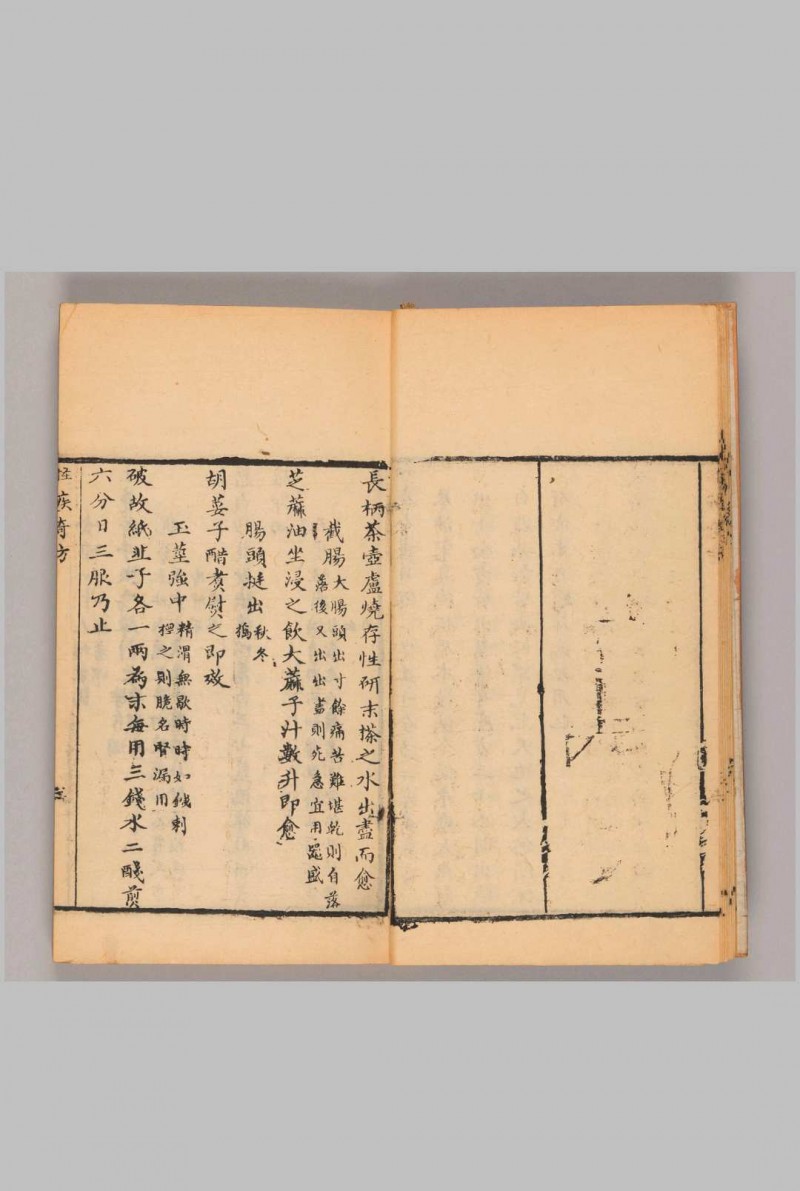 長柄茶壺盧燒存性研末搽之水出盡而愈
截腸大腸頭出寸餘痛苦難堪乾則自落
落後又出出盡則死急宜用噐盛
芝蔴油坐浸之飲大蔴子汁數升即愈
腸頭挺出秋冬
搗
胡荽子醋煑熨之即效
玉莖強中精滑無歇時時如鍼刺
捏之則脆名腎漏用
破故紙韭子各一兩為末每用三錢水二醆煎
六分日三服乃止
怪疾奇方